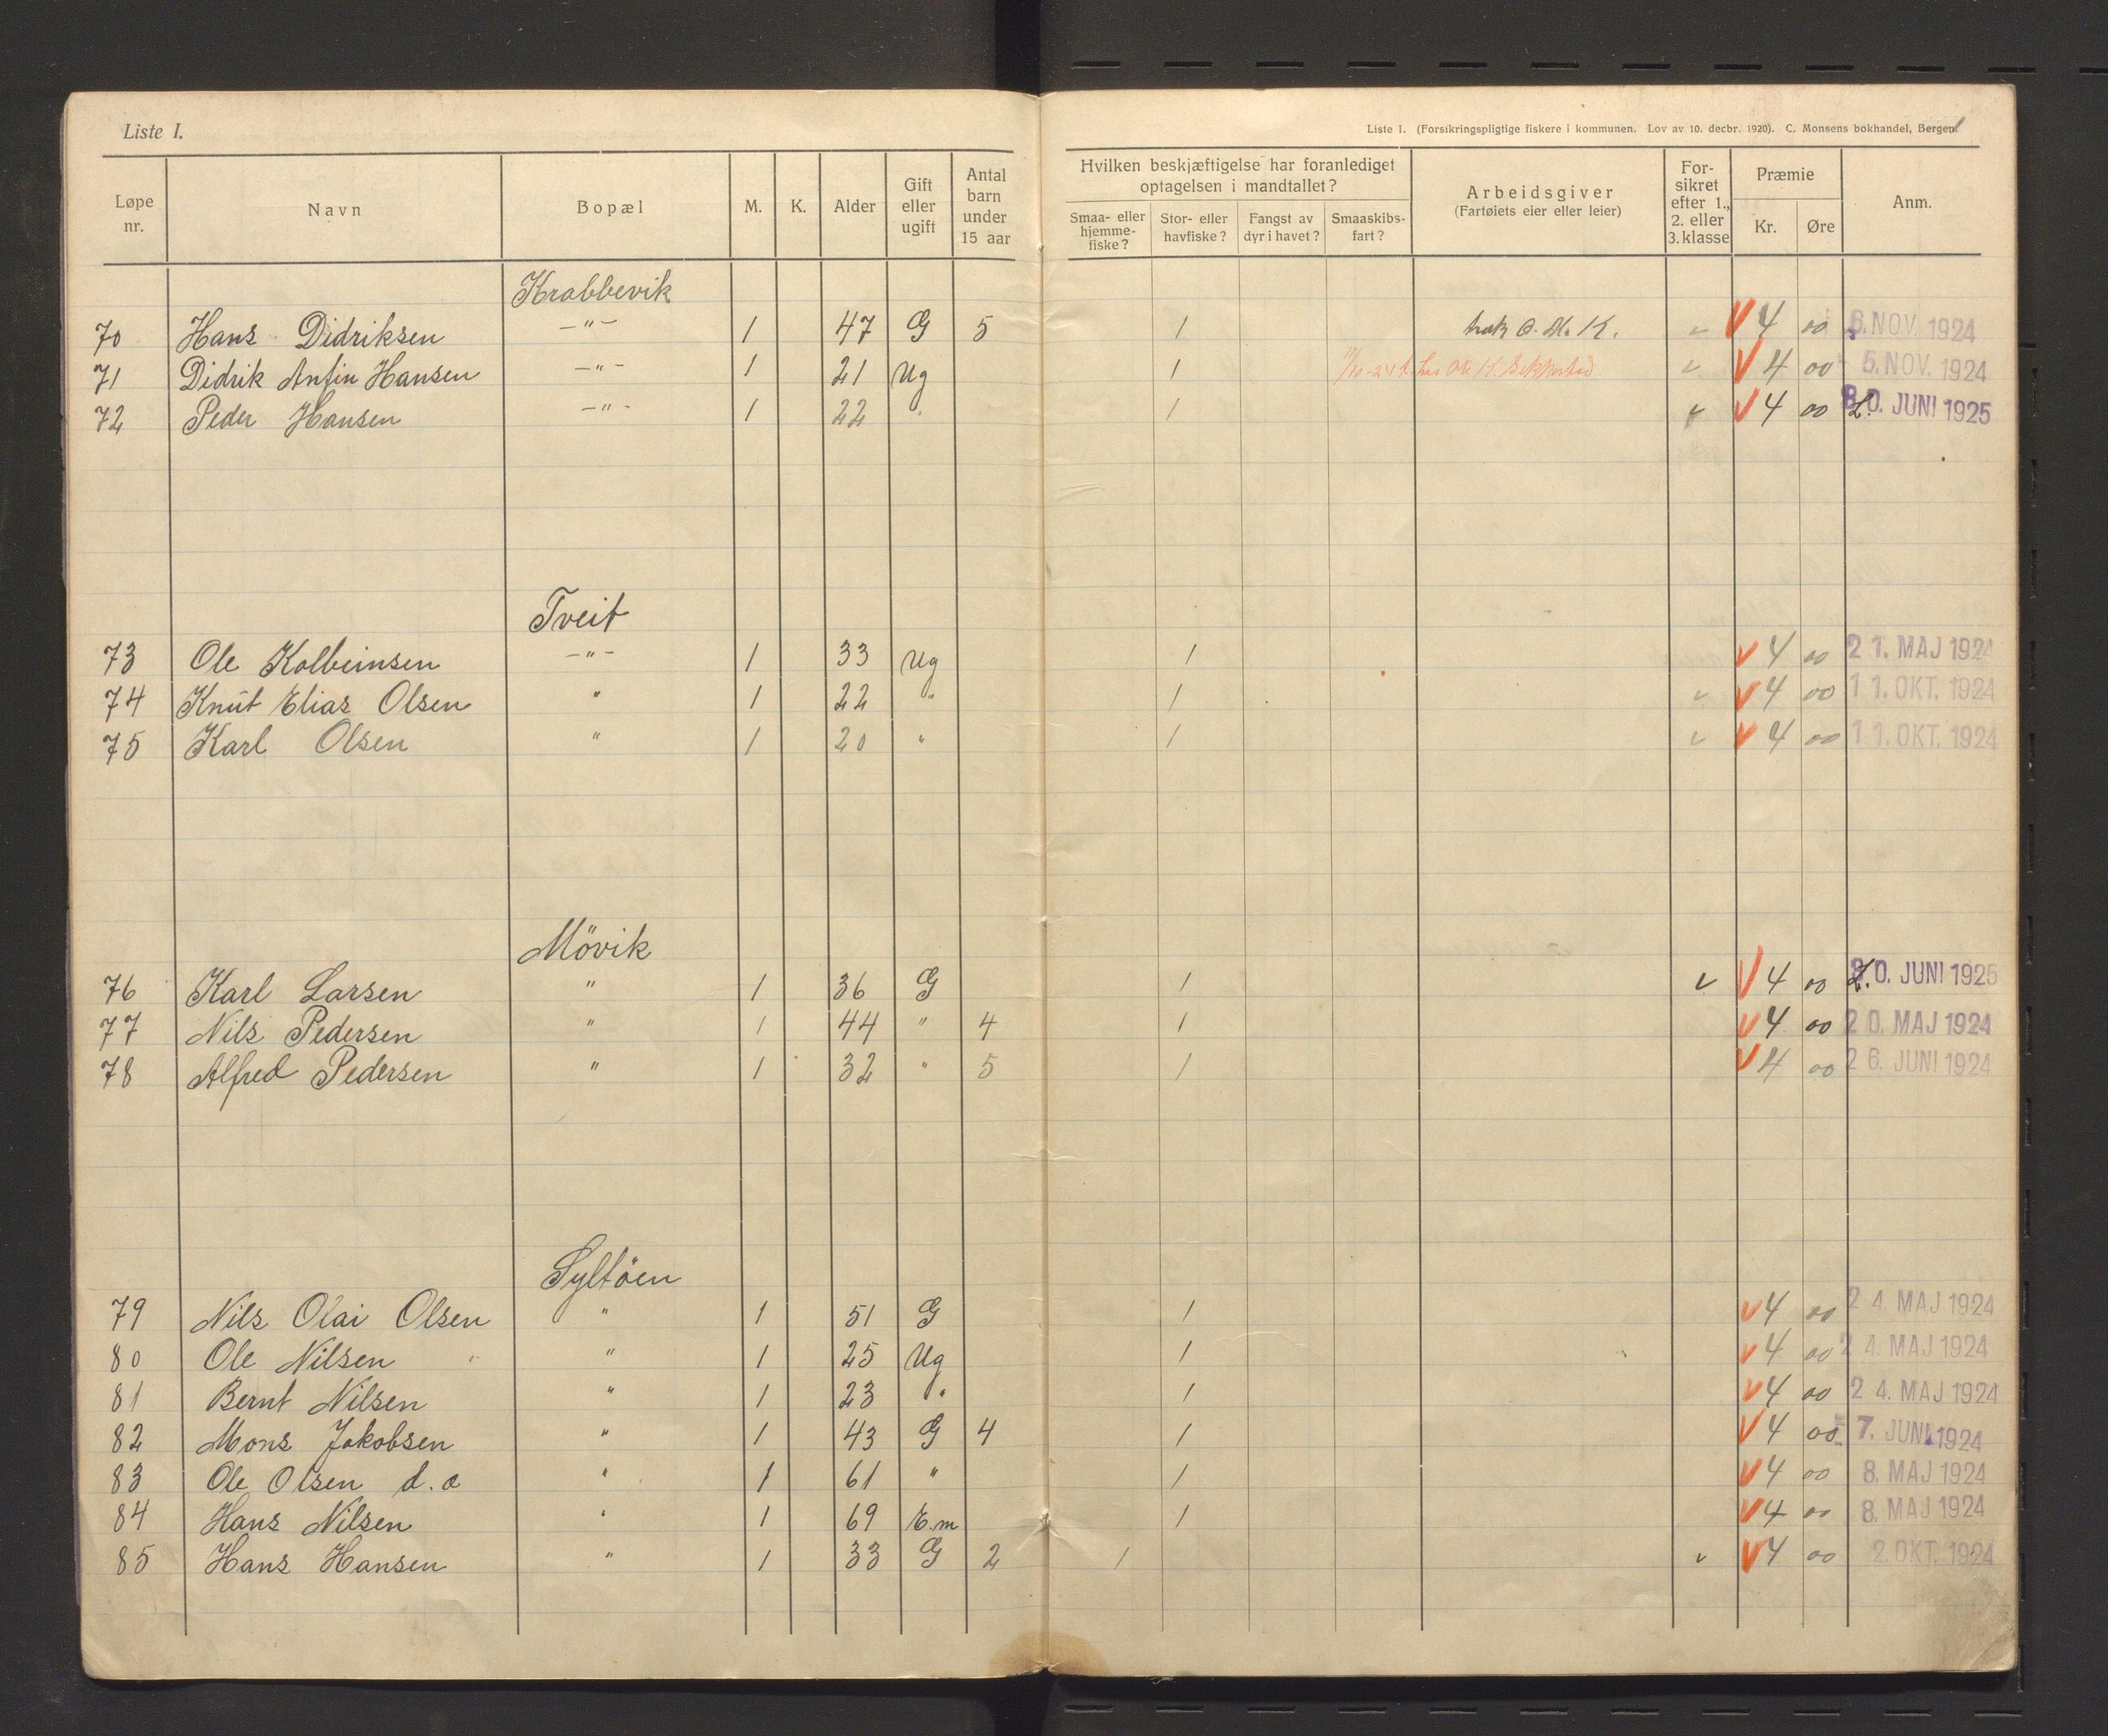 Liste I.
Liste 1. (Forsikringspligtige fiskere i kommunen. Lov av 10. decbr. 1920). C. Monsens bokhandel, Bergen.
Løpe nr. Navn Bopæl M. K. Alder Gift eller ugift Antal barn under 15 aar Hvilken beskjæftigelse har foranlediget optagelsen i mandtallet? Smaa- eller hjemme-fiske? Stor- eller havfiske? Fangst av dyr i havet? Smaaskibs-fart? Arbeidsgiver (Fartøiets eier eller leier) For-sikret efter 1., 2. eller 3. klasse Præmie Kr. Øre Anm.
Krabbevik
70 Hans Didriksen —"— 1 47 G 5 1 K. v V 4 00 NOV. 1924
71 Didrik Anfin Hansen —"— 1 21 Ug 1 v V 4 00 5. NOV. 1924
72 Peder Hansen —"— 1 22 " 1 v V 4 00 30. JUNI 1925
Tveit
73 Ole Kolbeinsen —"— 1 33 Ug 1 v 4 00 21. MAJ 1924
74 Knut Elias Olsen " 1 22 " 1 v V 4 00 11. OKT. 1924
75 Karl Olsen " 1 20 " 1 v V 4 00 11. OKT. 1924
Mövik
76 Karl Larsen " 1 36 G 1 v V 4 00 30. JUNI 1925
77 Nils Pedersen " 1 44 " 4 1 V 4 00 20. MAJ 1924
78 Alfred Pedersen " 1 32 " 5 1 V 4 00 26. JUNI 1924
Syltöen
79 Nils Olai Olsen " 1 51 G 1 V 4 00 24. MAJ 1924
80 Ole Nilsen " 1 25 Ug 1 V 4 00 24. MAJ 1924
81 Bernt Nilsen " 1 23 " 1 V 4 00 24. MAJ 1924
82 Mons Jakobsen " 1 43 G 4 1 V 4 00 7. JUNI 1924
83 Ole Olsen d. " 1 61 " 1 V 4 00 8. MAJ 1924
84 Hans Nilsen " 1 69 E.m 1 V 4 00 8. MAJ 1924
85 Hans Hansen " 1 33 G 2 1 v V 4 00 2. OKT. 1924